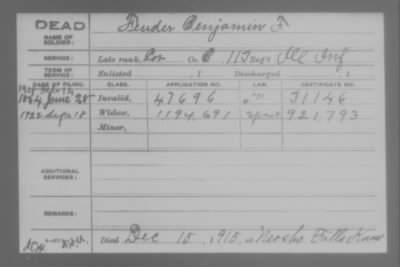 DEAD
NAME OF SOLDIER:
Fender Benjamin F
SERVICE:
Late rank, Cor Co. C, 115 Reg't Ill Inf
TERM OF SERVICE:
Enlisted , 1 Discharged , 1
DATE OF FILING. CLASS. APPLICATION NO. LAW. CERTIFICATE NO.
1864 June 28 Invalid, 47696 31146
1922 Sep 18 Widow, 1194,691 921,793
Minor,
ADDITIONAL SERVICES:
REMARKS:
Died Dec 15, 1915, at Neosho Falls Kans